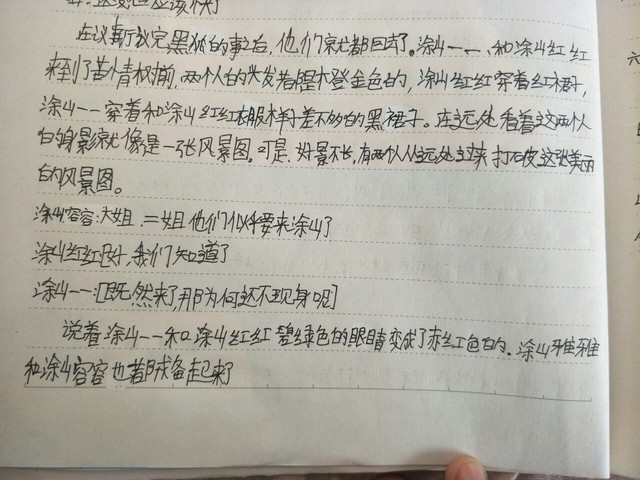 在议事厅议完黑狐的事之后，他们就都回去了。涂山一一、和涂山红红
来到了苦情树前，两个人的头发都是橙金色的，涂山红红穿着红裙子，
涂山一一穿着和涂山红红衣服样子差不多的黑裙子。在远处看着这两个人
的身影就像是一张风景图。可是，好景不长，有两个人从远处过来，打破这张美丽
的风景图。
涂山容容：大姐．二姐他们似乎要来涂山了
涂山红红：好，我们知道了
涂山一一：[既然来了，那为何还不现身呢]
说着涂山一一和涂山红红碧绿色的眼睛变成了赤红色的．涂山雅雅
和涂山容容也都戒备起来了